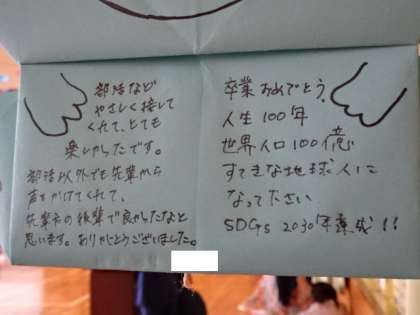 部活など
やさしく接して
くれて、とても
楽しかったです。
部活以外でも先輩から
声をかけてくれて、
先輩方の後輩で良かったなと
思います。ありがとうございました。
卒業おめでとう、
人生100年
世界人口100億
すてきな地球人に
なって下さい
SDGs 2030年達成!!